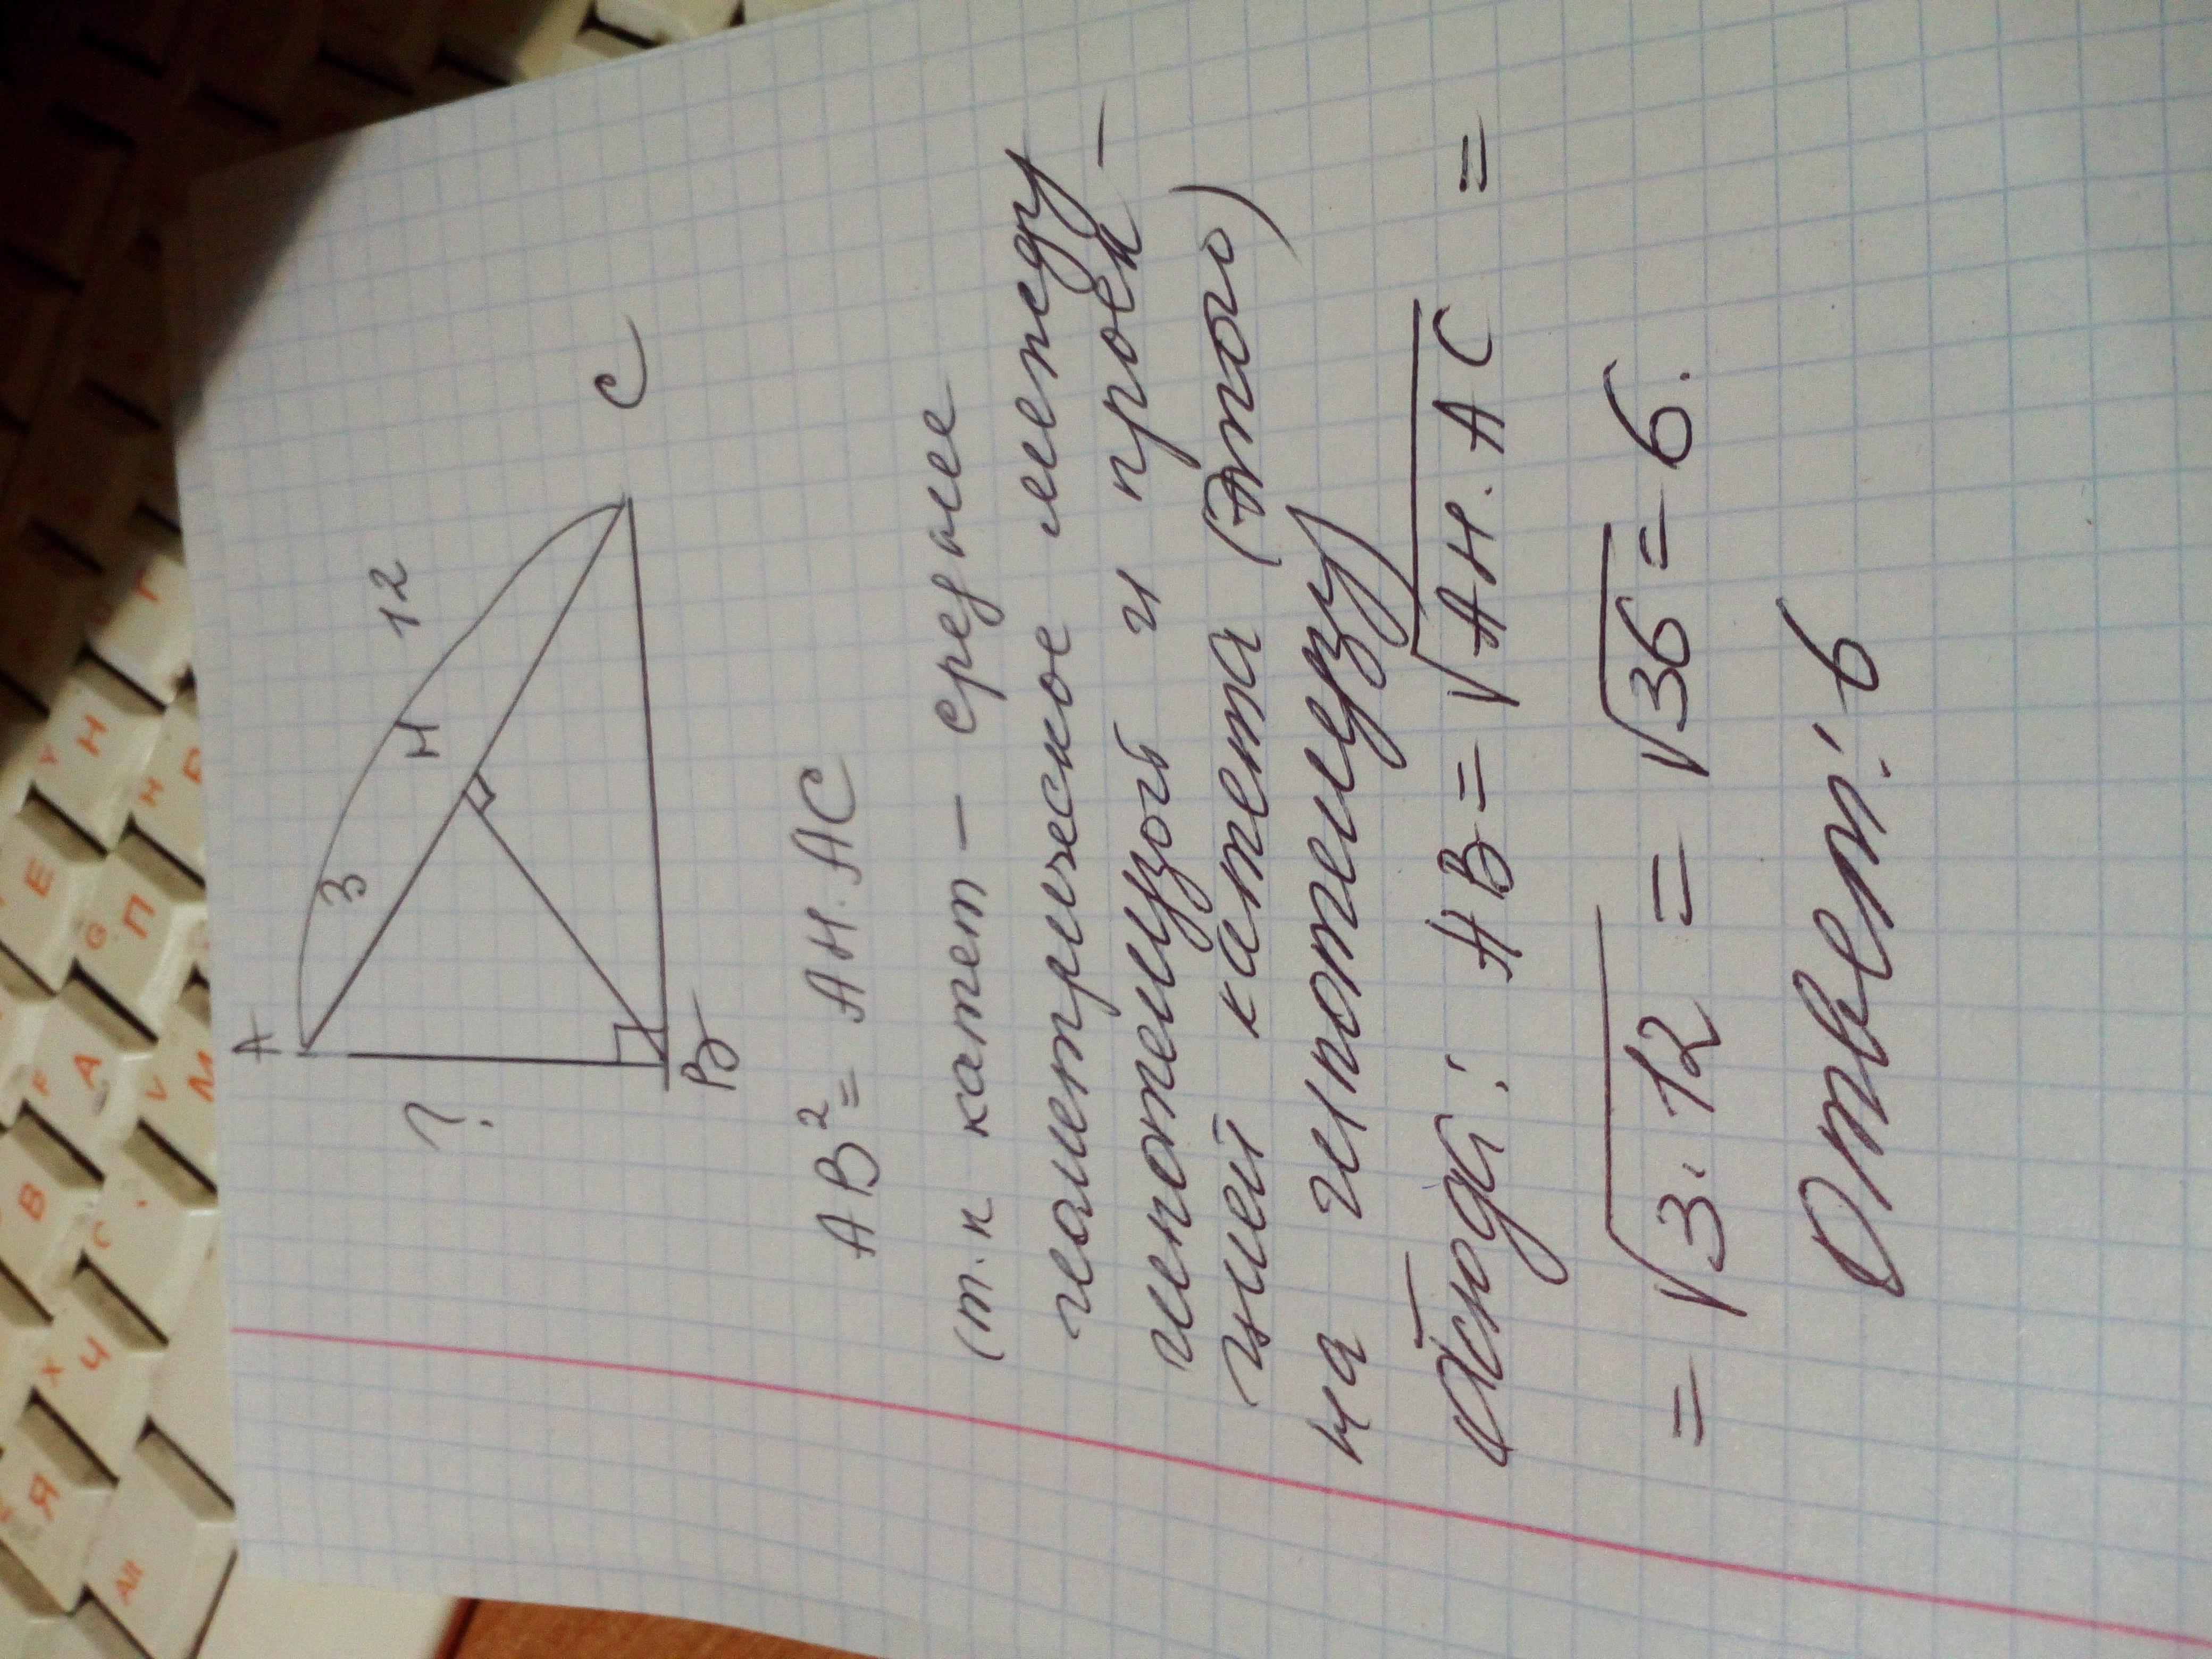 A
?
3
H
12
B
C
AB² = AH·AC
(т.к катет – среднее
геометрическое между
гипотенузой и проек-
цией катета (этого)
на гипотенузу)
Отсюда: AB = √AH·AC =
= √3·12 = √36 = 6.
Ответ: 6